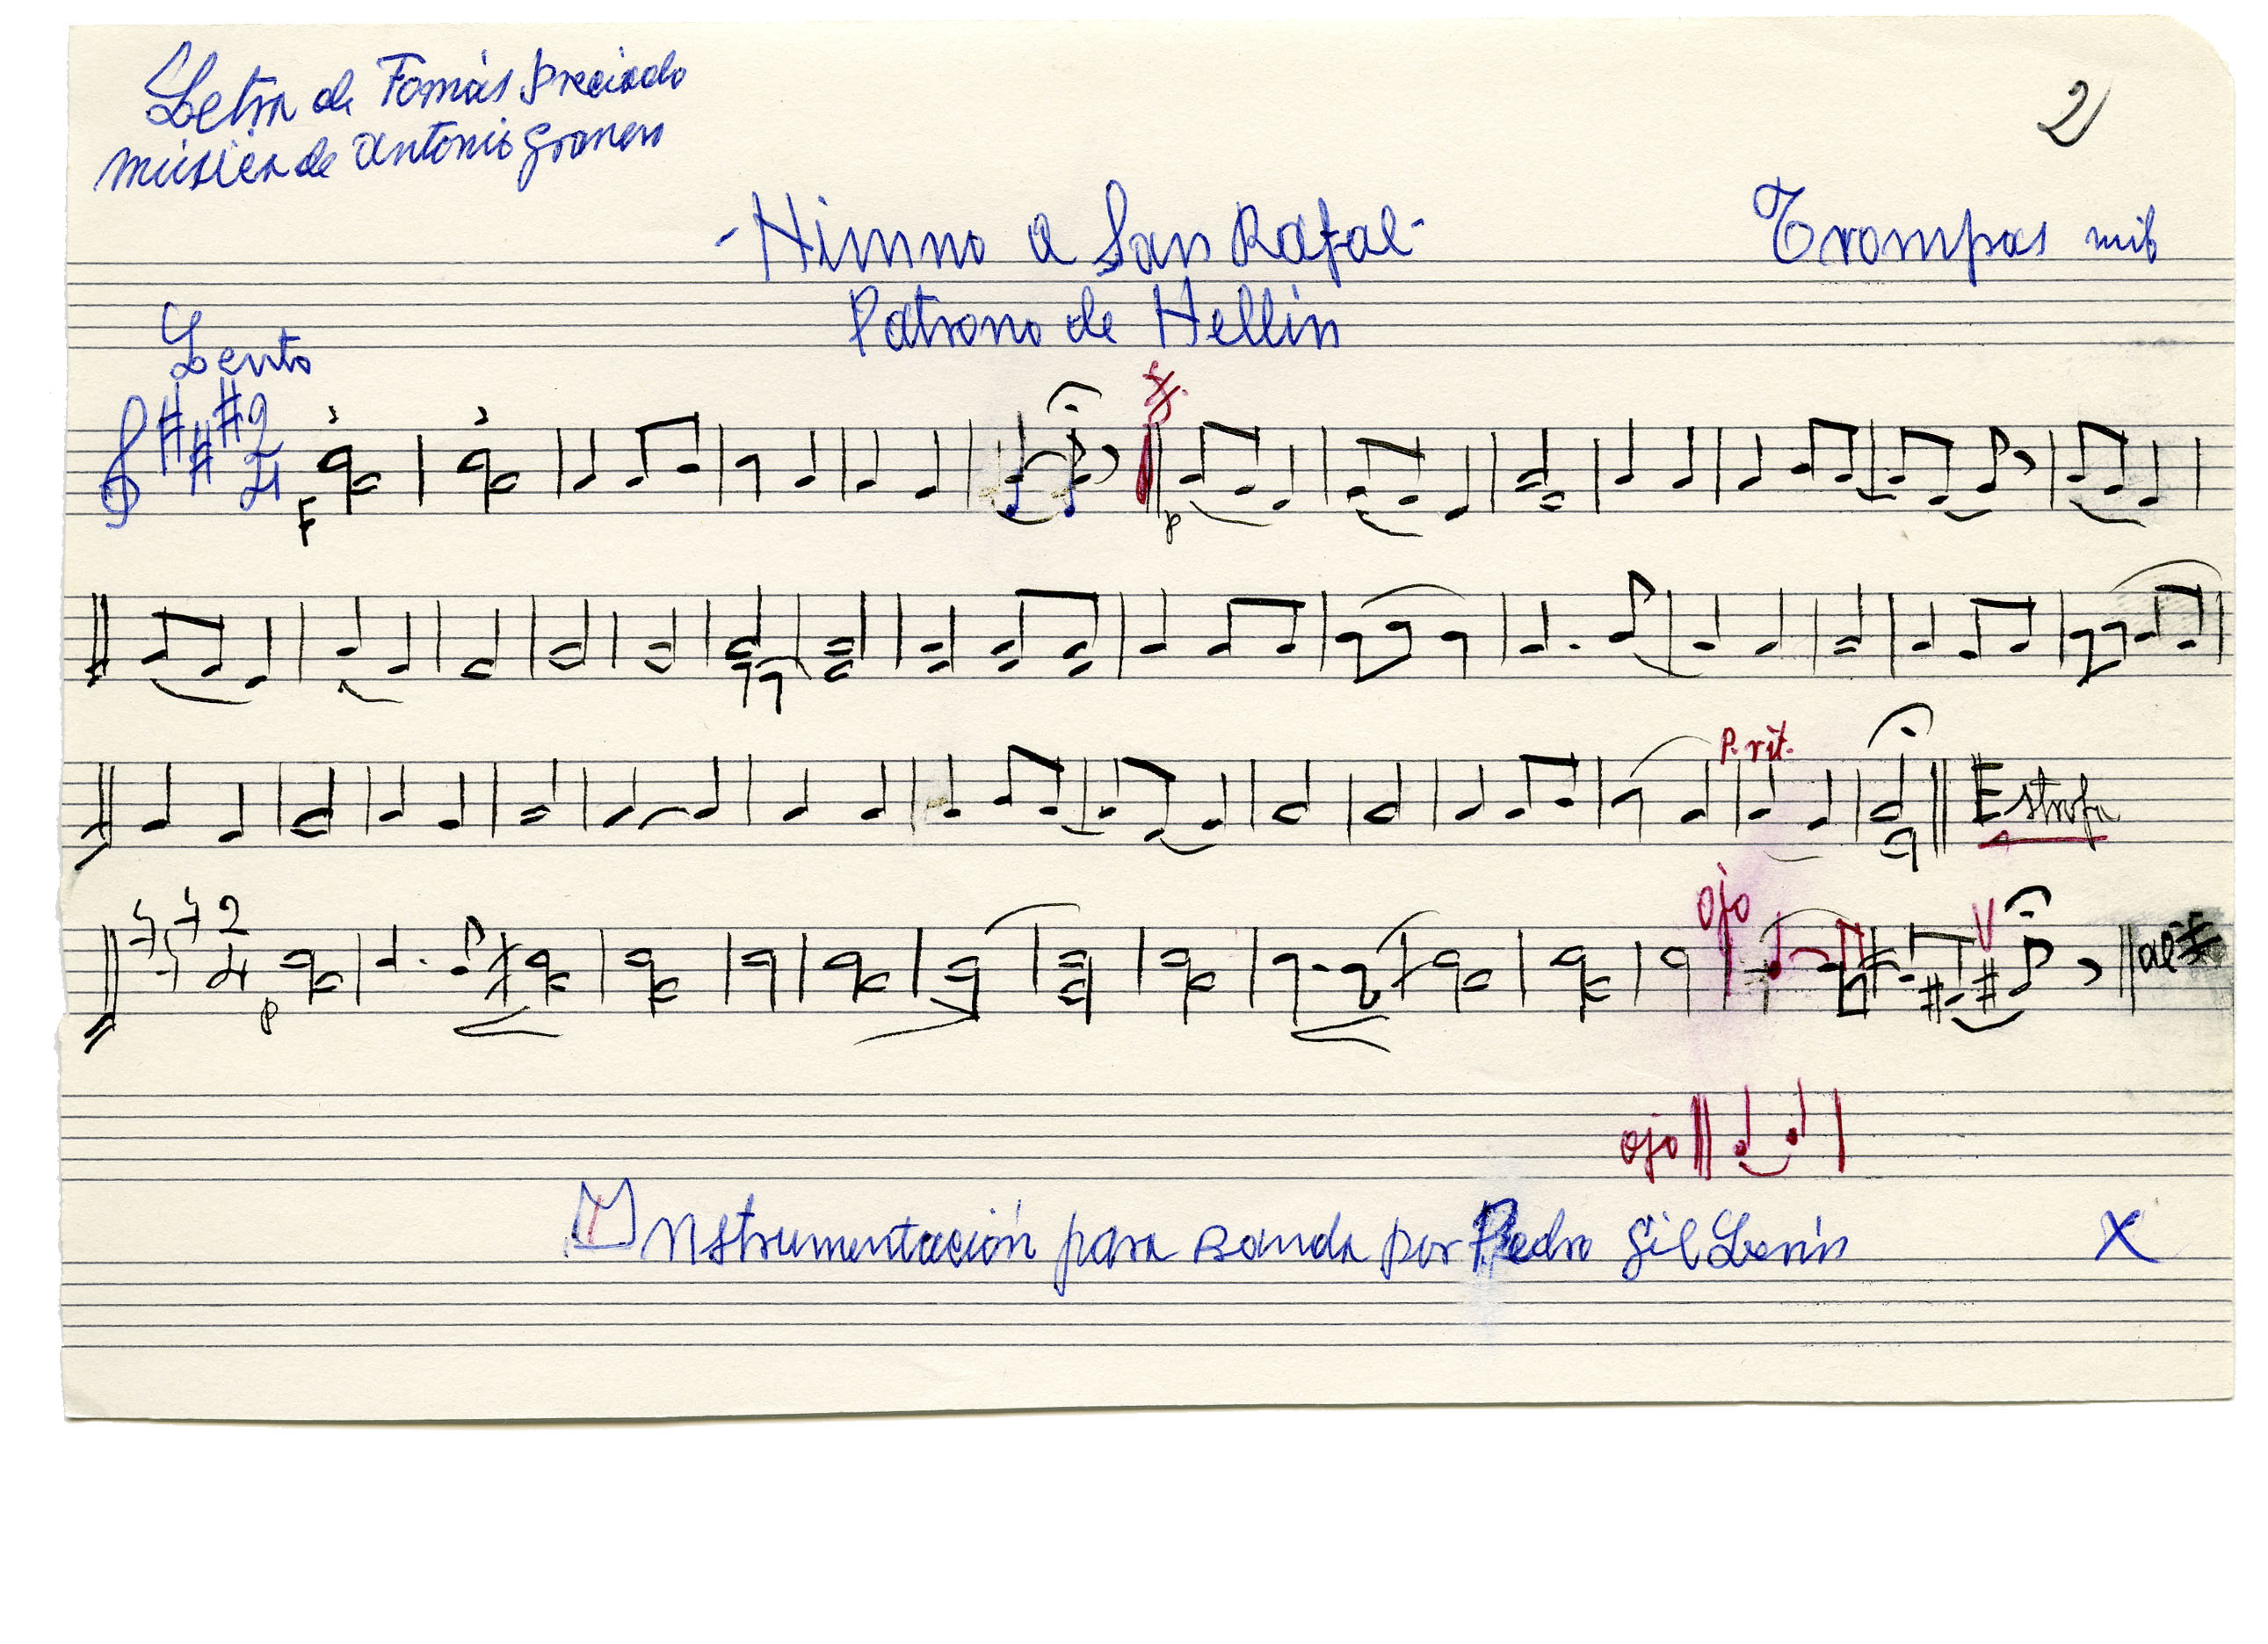 Letra de Tomás Preciado
música de Antonio Granero
2
- Himno a San Rafael -
Trompas mib
Patrono de Hellín
Lento
2
4
F
p
P. rit.
Estrofa
2
4
p
ojo
al
ojo
Instrumentación para Banda por Pedro Gil Lerín
X